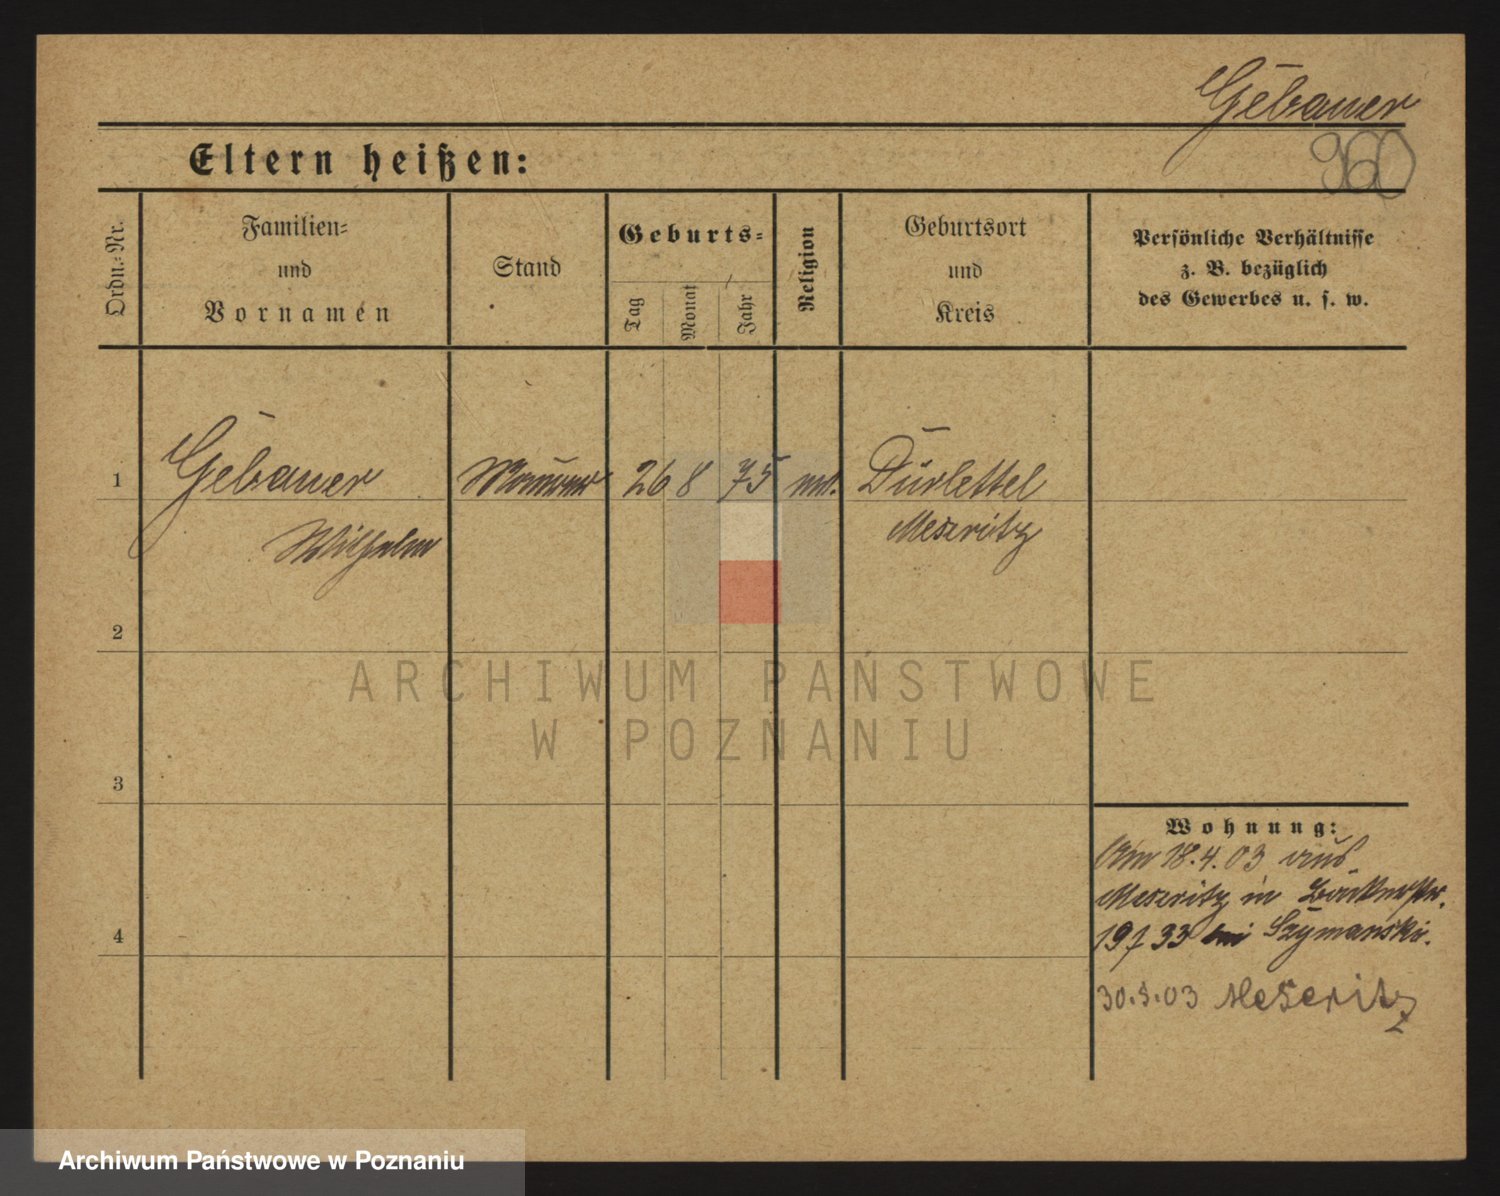 Gebauer
960
Eltern heißen:
Ordn.-Nr.
Familien-
und
Vornamen
Stand
Geburts-
Tag
Monat
Jahr
Religion
Geburtsort
und
Kreis
Persönliche Verhältnisse
z. B. bezüglich
des Gewerbes u. s. w.
1
Gebauer
Maurer
26
8
75
Dürlettel
Wilhelm
Meseritz
2
ARCHIWUM PAŃSTWOWE
W POZNANIU
3
4
Wohnung:
Am 18.4.03 aus
Meseritz in Bäckerstr.
19 / 33 bei Szymanski.
30.5.03 Meseritz
Archiwum Państwowe w Poznaniu